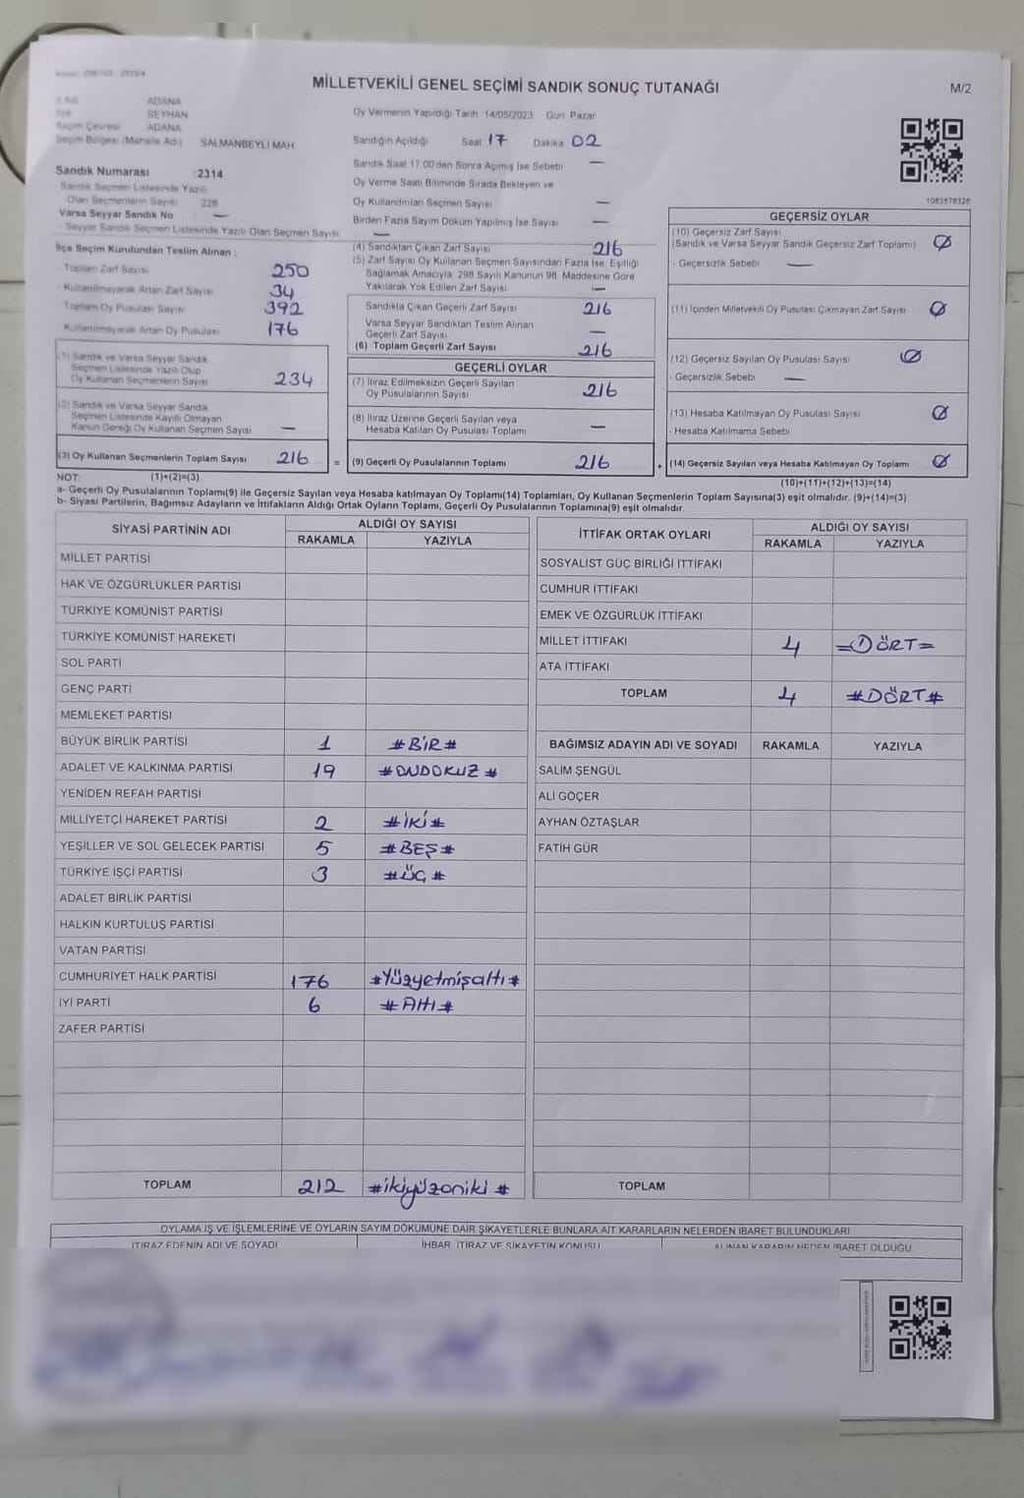 MİLLETVEKİLİ GENEL SEÇİMİ SANDIK SONUÇ TUTANAĞI
M/2
ADANA
SEYHAN
ADANA
Seçim Bölgesi (Mahalle Adı) SALMANBEYLİ MAH
Oy Vermenin Yapıldığı Tarih 14/05/2023 Gün Pazar
Sandığın Açıldığı Saat 17 Dakika 02
Sandık Saat 17:00'den Sonra Açılmış İse Sebebi —
Oy Verme Saati Bitiminde Sırada Bekleyen ve
Oy Kullandırılan Seçmen Sayısı —
Birden Fazla Sayım Döküm Yapılmış İse Sayısı —
1083578328
Sandık Numarası :2314
Sandık Seçmen Listesinde Yazılı
Olan Seçmenlerin Sayısı 228
Varsa Seyyar Sandık No —
Seyyar Sandık Seçmen Listesinde Yazılı Olan Seçmen Sayısı —
İlçe Seçim Kurulundan Teslim Alınan :
Toplam Zarf Sayısı 250
Kullanılmayarak Artan Zarf Sayısı 34
Toplam Oy Pusulası Sayısı 392
Kullanılmayarak Artan Oy Pusulası 176
(1) Sandık ve Varsa Seyyar Sandık
Seçmen Listesinde Yazılı Olup
Oy Kullanan Seçmenlerin Sayısı 234
(2) Sandık ve Varsa Seyyar Sandık
Seçmen Listesinde Kayıtlı Olmayan
Kanun Gereği Oy Kullanan Seçmen Sayısı —
(3) Oy Kullanan Seçmenlerin Toplam Sayısı 216 =
(4) Sandıktan Çıkan Zarf Sayısı 216
(5) Zarf Sayısı Oy Kullanan Seçmen Sayısından Fazla İse, Eşitliği
Sağlamak Amacıyla 298 Sayılı Kanunun 98. Maddesine Göre
Yakılarak Yok Edilen Zarf Sayısı —
Sandıkta Çıkan Geçerli Zarf Sayısı 216
Varsa Seyyar Sandıktan Teslim Alınan
Geçerli Zarf Sayısı —
(6) Toplam Geçerli Zarf Sayısı 216
GEÇERLİ OYLAR
(7) İtiraz Edilmeksizin Geçerli Sayılan
Oy Pusulalarının Sayısı 216
(8) İtiraz Üzerine Geçerli Sayılan veya
Hesaba Katılan Oy Pusulası Toplamı —
(9) Geçerli Oy Pusulalarının Toplamı 216 +
GEÇERSİZ OYLAR
(10) Geçersiz Zarf Sayısı
(Sandık ve Varsa Seyyar Sandık Geçersiz Zarf Toplamı) Ø
- Geçersizlik Sebebi —
(11) İçinden Milletvekili Oy Pusulası Çıkmayan Zarf Sayısı Ø
(12) Geçersiz Sayılan Oy Pusulası Sayısı Ø
- Geçersizlik Sebebi —
(13) Hesaba Katılmayan Oy Pusulası Sayısı Ø
- Hesaba Katılmama Sebebi
(14) Geçersiz Sayılan veya Hesaba Katılmayan Oy Toplamı Ø
NOT: (1)+(2)=(3)
(10)+(11)+(12)+(13)=(14)
a- Geçerli Oy Pusulalarının Toplamı(9) ile Geçersiz Sayılan veya Hesaba katılmayan Oy Toplamı(14) Toplamları, Oy Kullanan Seçmenlerin Toplam Sayısına(3) eşit olmalıdır. (9)+(14)=(3)
b- Siyasi Partilerin, Bağımsız Adayların ve İttifakların Aldığı Ortak Oyların Toplamı, Geçerli Oy Pusulalarının Toplamına(9) eşit olmalıdır.
SİYASİ PARTİNİN ADI ALDIĞI OY SAYISI
RAKAMLA YAZIYLA
MİLLET PARTİSİ
HAK VE ÖZGÜRLÜKLER PARTİSİ
TÜRKİYE KOMÜNİST PARTİSİ
TÜRKİYE KOMÜNİST HAREKETİ
SOL PARTİ
GENÇ PARTİ
MEMLEKET PARTİSİ
BÜYÜK BİRLİK PARTİSİ 1 #BİR#
ADALET VE KALKINMA PARTİSİ 19 #ONDOKUZ#
YENİDEN REFAH PARTİSİ
MİLLİYETÇİ HAREKET PARTİSİ 2 #İKİ#
YEŞİLLER VE SOL GELECEK PARTİSİ 5 #BEŞ#
TÜRKİYE İŞÇİ PARTİSİ 3 #ÜÇ#
ADALET BİRLİK PARTİSİ
HALKIN KURTULUŞ PARTİSİ
VATAN PARTİSİ
CUMHURİYET HALK PARTİSİ 176 #Yüzyetmişaltı#
İYİ PARTİ 6 #Altı#
ZAFER PARTİSİ
TOPLAM 212 #ikiyüzoniki#
İTTİFAK ORTAK OYLARI ALDIĞI OY SAYISI
RAKAMLA YAZIYLA
SOSYALİST GÜÇ BİRLİĞİ İTTİFAKI
CUMHUR İTTİFAKI
EMEK VE ÖZGÜRLÜK İTTİFAKI
MİLLET İTTİFAKI 4 =DÖRT=
ATA İTTİFAKI
TOPLAM 4 #DÖRT#
BAĞIMSIZ ADAYIN ADI VE SOYADI RAKAMLA YAZIYLA
SALİM ŞENGÜL
ALİ GÖÇER
AYHAN ÖZTAŞLAR
FATİH GÜR
TOPLAM
OYLAMA İŞ VE İŞLEMLERİNE VE OYLARIN SAYIM DÖKÜMÜNE DAİR ŞİKAYETLERLE BUNLARA AİT KARARLARIN NELERDEN İBARET BULUNDUKLARI
İTİRAZ EDENİN ADI VE SOYADI İHBAR, İTİRAZ VE ŞİKAYETİN KONUSU ALINAN KARARIN NEDEN İBARET OLDUĞU